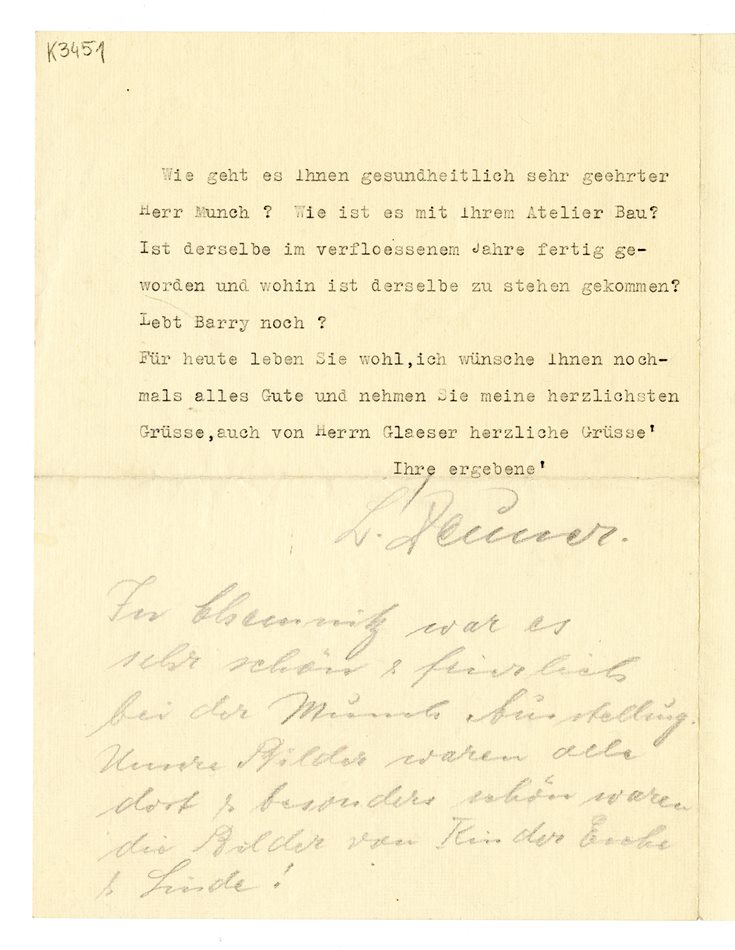 K3451
Wie geht es Ihnen gesundheitlich sehr geehrter
Herr Munch ? Wie ist es mit Ihrem Atelier Bau?
Ist derselbe im verfloessenem Jahre fertig ge-
worden und wohin ist derselbe zu stehen gekommen?
Lebt Barry noch ?
Für heute leben Sie wohl,ich wünsche Ihnen noch-
mals alles Gute und nehmen Sie meine herzlichsten
Grüsse,auch von Herrn Glaeser herzliche Grüsse'
Ihre ergebene'
L.
In Chemnitz war es
sehr schön & feierlich
bei der Munch Ausstellung.
Unsre Bilder waren alle
dort & besonders schön waren
die Bilder von Kinder Esche
& Linde !